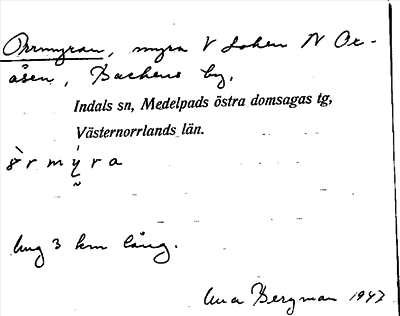 Orrmyran, myra V Lohen N Ox-
åsen, Backens by.
Indals sn, Medelpads östra domsagas tg,
Västernorrlands län.
òrmýra
hug 3 km lång.
Anna Bergman 1947